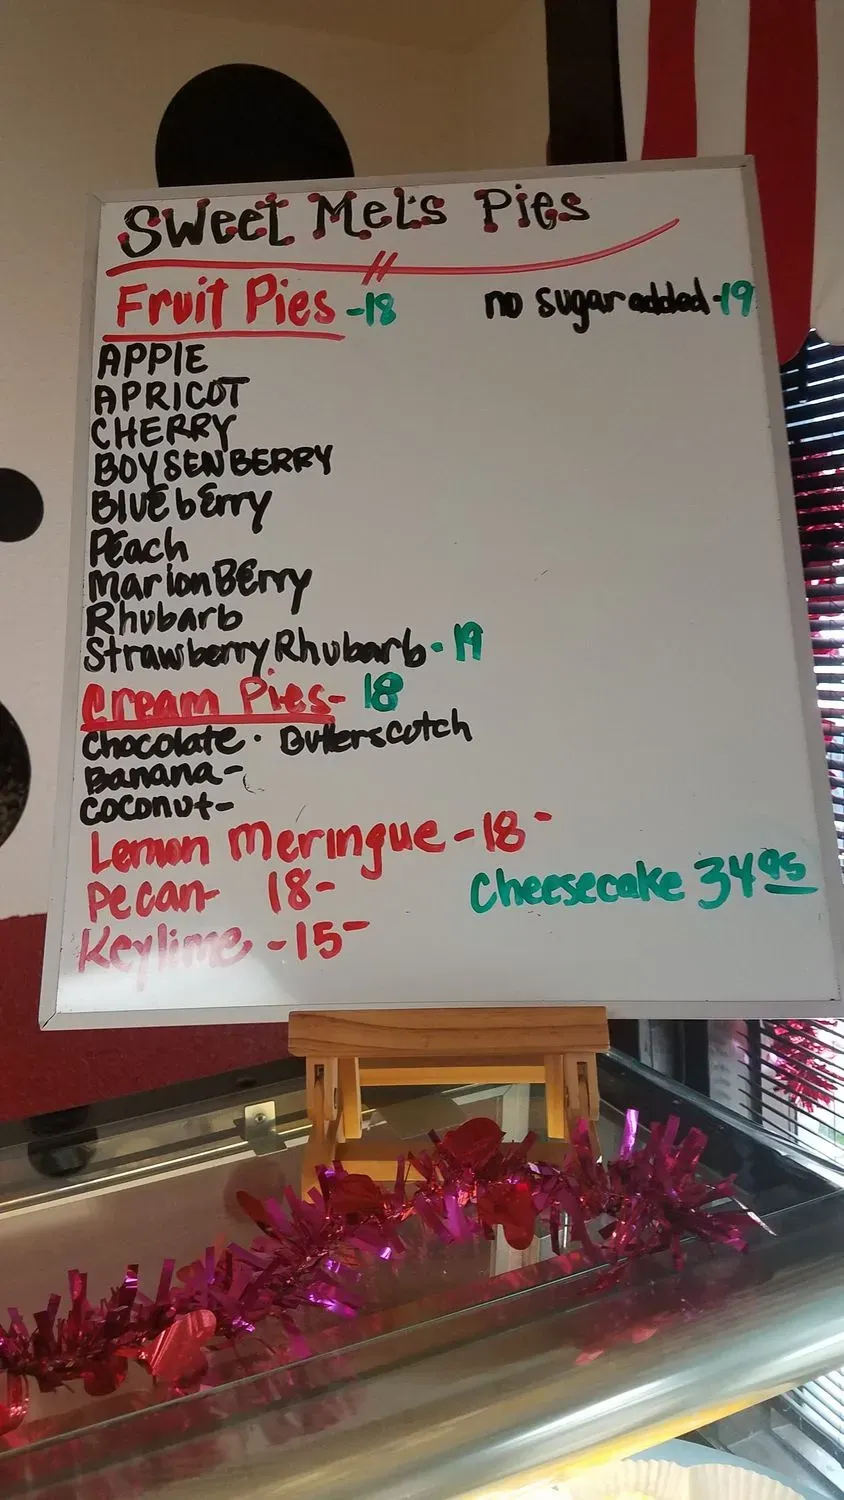 Sweet Mel's Pies
Fruit Pies -18 no sugar added -19
APPlE
APRICOT
CHERRY
BOYSENBERRY
BlUEbErry
PEach
MarionBErry
Rhubarb
Strawberry Rhubarb - 19
Cream Pies- 18
Chocolate · Butterscotch
Banana-
Coconut-
Lemon Meringue -18-
Pecan- 18-
Cheesecake 34 95
Keylime -15-